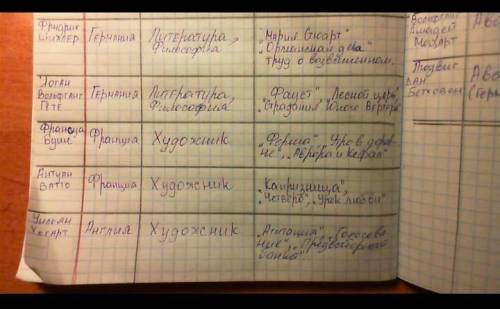 Фридрих Шиллер
Германия
Литература,
Философия
„Мария Стюарт"
„Орлеанская дева"
труд о возвышенном.
Иоган
Вольфганг
Гёте
Германия
Литература,
Философия
„Фауст", „Лесной царь",
„Страдания Юного Вертера"
Франсуа
Буше
Франция
Художник
„Ферма", „Утро в дерев-
не", „Аврора и Кефал"
Антуан
Ватто
Франция
Художник
„Капризница",
„Урок любви"
Уильям
Хогарт
Англия
Художник
Вольфганг
Амадей
Моцарт
Людвиг
ван
Бетховен